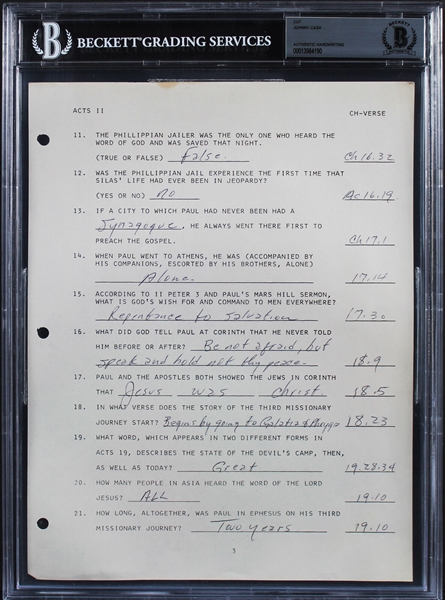 BECKETT GRADING SERVICES
CUT
JOHNNY CASH
AUTHENTIC HANDWRITING
00013984190
BECKETT
ACTS II CH-VERSE
11. THE PHILLIPPIAN JAILER WAS THE ONLY ONE WHO HEARD THE
WORD OF GOD AND WAS SAVED THAT NIGHT.
(TRUE OR FALSE) False. Ch 16.32
12. WAS THE PHILLIPPIAN JAIL EXPERIENCE THE FIRST TIME THAT
SILAS' LIFE HAD EVER BEEN IN JEOPARDY?
(YES OR NO) no Ac 16.19
13. IF A CITY TO WHICH PAUL HAD NEVER BEEN HAD A
Synagogue, HE ALWAYS WENT THERE FIRST TO
PREACH THE GOSPEL. Ch 17.1
14. WHEN PAUL WENT TO ATHENS, HE WAS (ACCOMPANIED BY
HIS COMPANIONS, ESCORTED BY HIS BROTHERS, ALONE)
Alone. 17.14
15. ACCORDING TO II PETER 3 AND PAUL'S MARS HILL SERMON,
WHAT IS GOD'S WISH FOR AND COMMAND TO MEN EVERYWHERE?
Repentance to salvation 17.30
16. WHAT DID GOD TELL PAUL AT CORINTH THAT HE NEVER TOLD
HIM BEFORE OR AFTER? Be not afraid, but
speak and hold not thy peace. 18.9
17. PAUL AND THE APOSTLES BOTH SHOWED THE JEWS IN CORINTH
THAT Jesus was Christ. 18.5
18. IN WHAT VERSE DOES THE STORY OF THE THIRD MISSIONARY
JOURNEY START? Begins by going to Galatia & 18.23
19. WHAT WORD, WHICH APPEARS IN TWO DIFFERENT FORMS IN
ACTS 19, DESCRIBES THE STATE OF THE DEVIL'S CAMP, THEN,
AS WELL AS TODAY? Great 19.28.34
20. HOW MANY PEOPLE IN ASIA HEARD THE WORD OF THE LORD
JESUS? ALL 19.10
21. HOW LONG, ALTOGETHER, WAS PAUL IN EPHESUS ON HIS THIRD
MISSIONARY JOURNEY? Two years 19.10
3